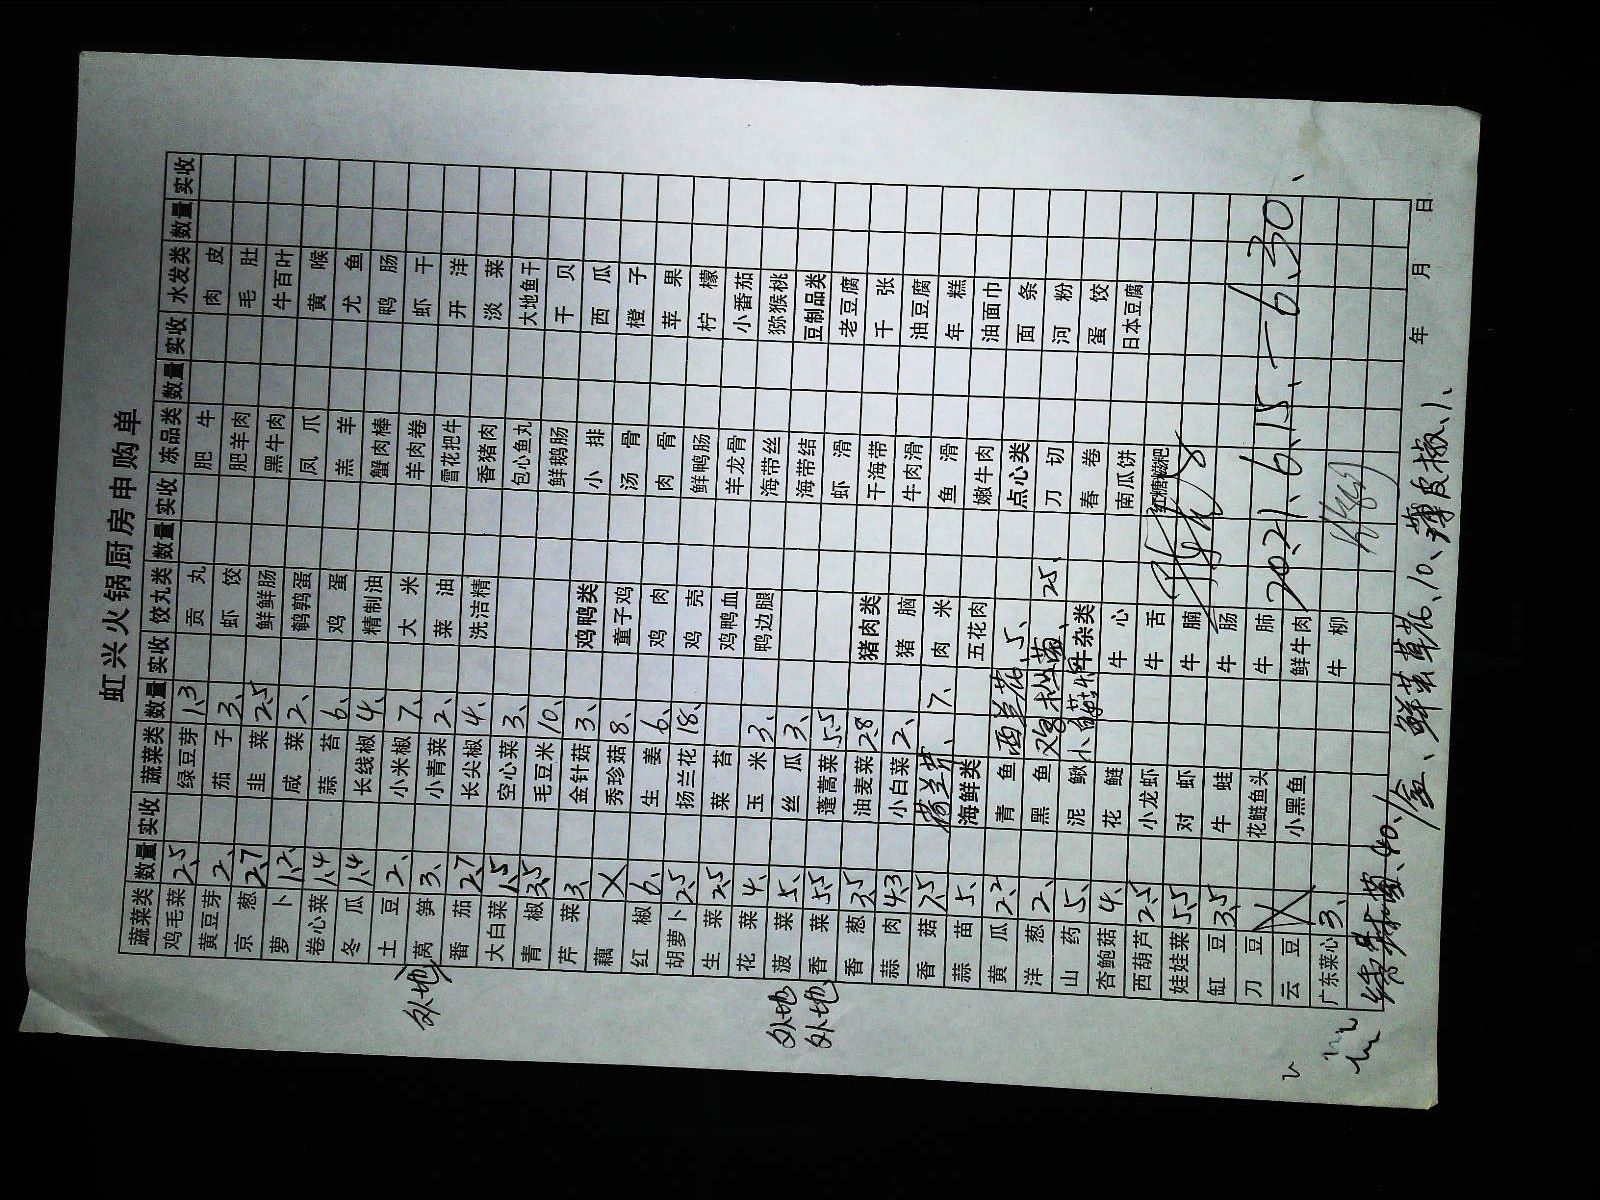 虹兴火锅厨房申购单
蔬菜类 数量 实收 蔬菜类 数量 实收 饺丸类 数量 实收 冻品类 数量 实收 水发类 数量 实收
鸡毛菜 2.5 绿豆芽 1.3 贡丸 肥牛 肉皮
黄豆芽 2、 茄子 3、 虾饺 肥羊肉 毛肚
京葱 2.7 韭菜 2.5 鲜鲜肠 黑牛肉 牛百叶
萝卜 1.2、 咸菜 2、 鹌鹑蛋 凤爪 黄喉
卷心菜 1.4 蒜苔 6、 鸡蛋 羔羊 尤鱼
冬瓜 1.4 长线椒 4、 精制油 蟹肉棒 鸭肠
土豆 2、 小米椒 7、 大米 羊肉卷 虾干
外地 莴笋 3、 小青菜 2、 菜油 雪花把牛 开洋
番茄 2.7 长尖椒 4、 洗洁精 香猪肉 淡菜
大白菜 1.5 空心菜 3、 包心鱼丸 大地鱼干
青椒 3.5 毛豆米 10、 鲜鹅肠 干贝
芹菜 3 金针菇 3、 鸡鸭类 小排 西瓜
藕 X 秀珍菇 8、 童子鸡 汤骨 橙子
红椒 6、 生姜 6、 鸡肉 肉骨 苹果
胡萝卜 2.5 扬兰花 18、 鸡壳 鲜鸭肠 柠檬
生菜 2.5 菜苔 鸡鸭血 羊龙骨 小番茄
花菜 4、 玉米 3、 鸭边腿 海带丝 猕猴桃
外地 菠菜 5、 丝瓜 3、 海带结 豆制品类
外地、 香菜 5.5 蓬蒿菜 5.5 虾滑 老豆腐
香葱 3.5 油麦菜 2.8 猪肉类 干海带 千张
蒜肉 4.3 小白菜 2、 猪脑 牛肉滑 油豆腐
香菇 7.5 7、 肉米 鱼滑 年糕
蒜苗 5、 海鲜类 五花肉 嫩牛肉 油面巾
黄瓜 2.2 青鱼 西兰苔、5、 点心类 面条
洋葱 2、 黑鱼 25、 刀切 河粉
山药 5、 泥鳅 牛杂类 春卷 蛋饺
杏鲍菇 4、 花鲢 牛心 南瓜饼 日本豆腐
西葫芦 2.5 小龙虾 牛舌 红糖糍粑
娃娃菜 5.5 对虾 牛腩
缸豆 3.5 牛蛙 牛肠
刀豆 花鲢鱼头 牛肺
云豆 小黑鱼 鲜牛肉 2021、6.15、—6.30、
广东菜心 3、 牛柳
40、 10、薄皮椒、
年 月 日